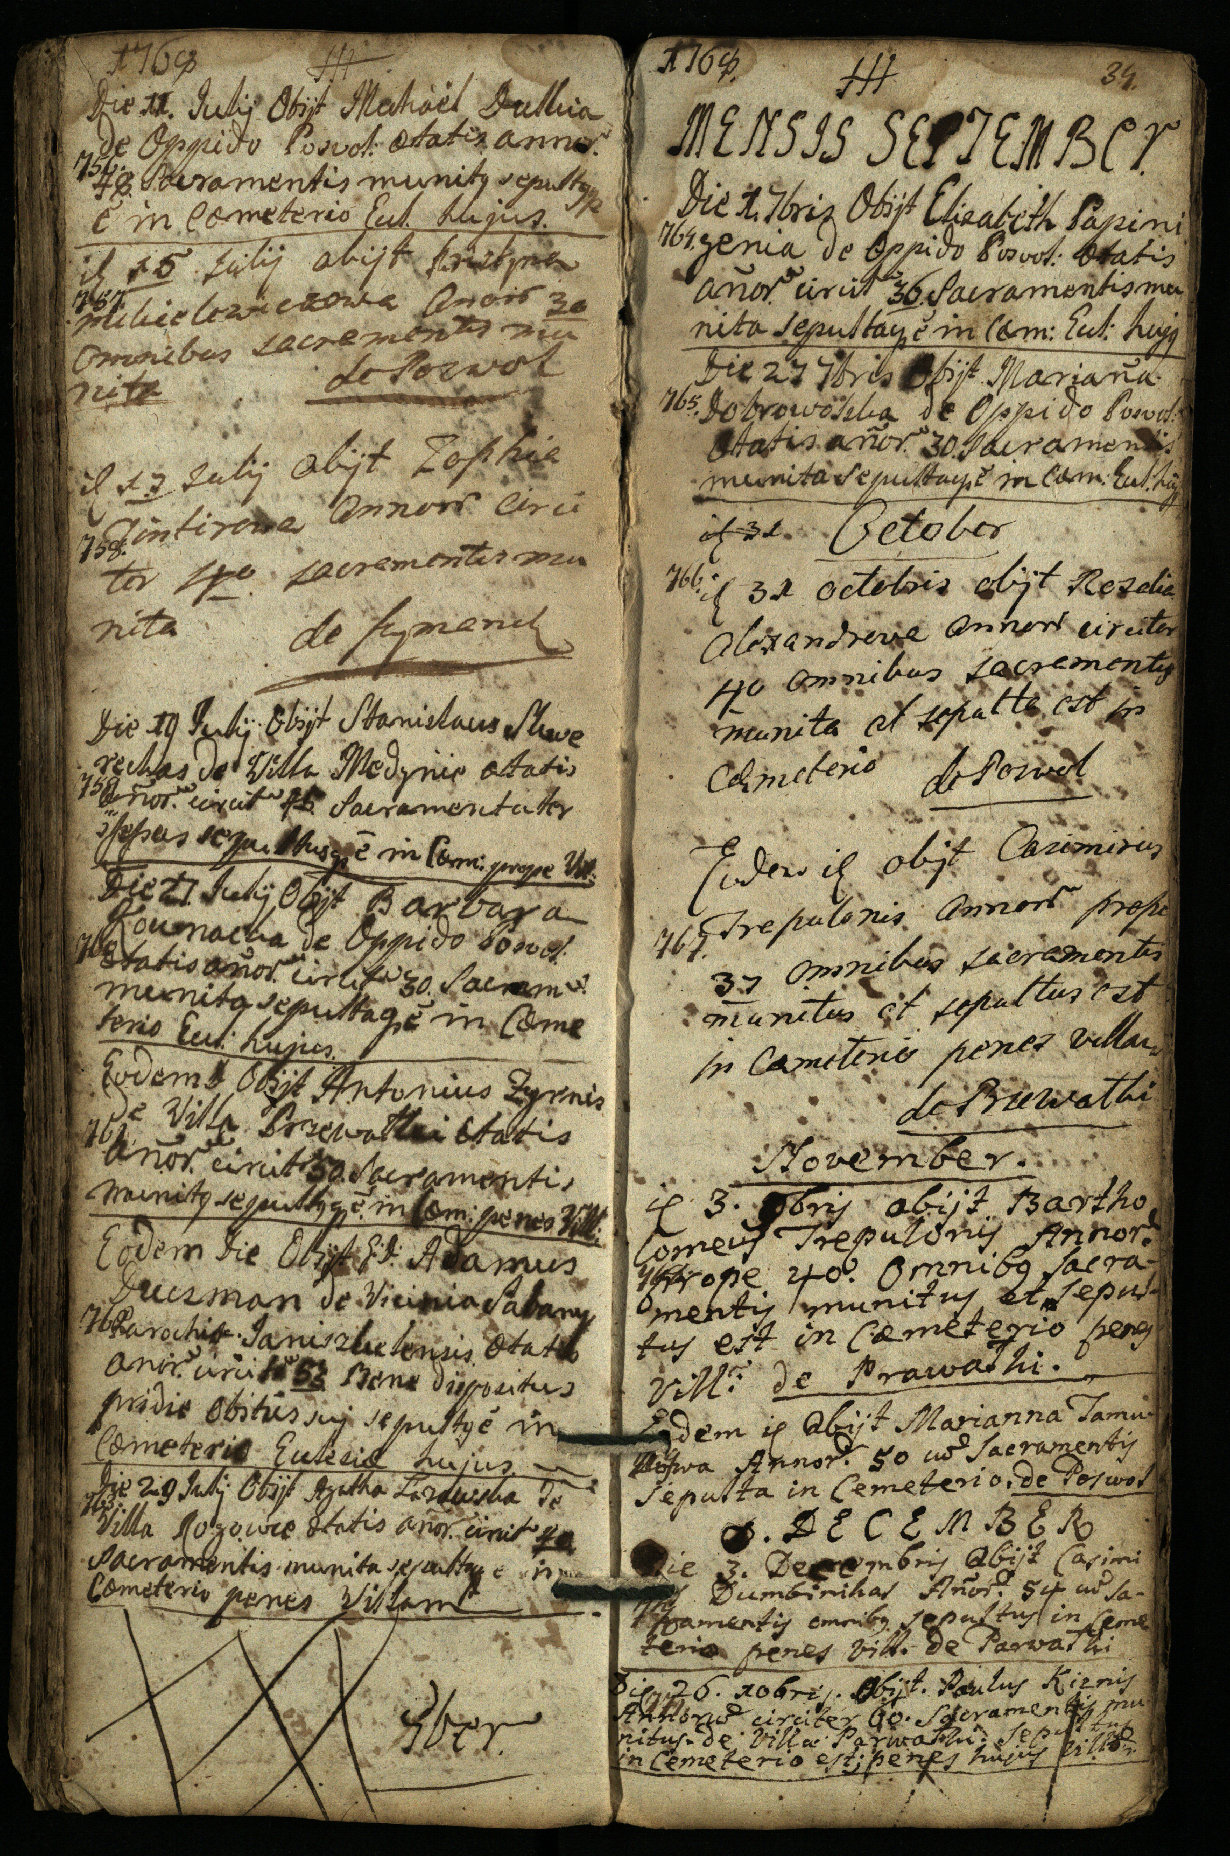 1769
Die 11. Julij Obijt Michaël Dullua
de Oppido Poswol: ætatis annor.
756.
48. Sacramentis munitq sepultq
ē in Cœmeterio Eccl. hujus.
15 Julij obijt Kristyna
757.
Michielowiczowa Annor 30
omnibus sacramentis mu
nita de Poswol
17 Julij obijt Zophia
Gintirowa annor circi
758.
ter 40 sacramentis mu
nita de Kymanch
Die 19 Julij Obijt Stanislaus Sluwe
rechas de Villa Medynie ætatis
759
añor. circit Sacramentaliter
sepultusqe ē in Cœm: prope Vil:
Die 27 Julij Obijt Barbara
de Oppido Poswol:
760
Ætatis añor. circit 30. Sacram:
munita sepultaqe ē in Cœme
terio Eccl. hujus.
Eodem Obijt Antonius Zyrnis
de Villa Przewalkai ætatis
761.
añor. circit 50 Sacramentis
munitq sepultqe ē in Cœm: penes Vill:
Eodem Die Obijt Adamus
Duczman de Vicinia Sabany
762
Parochiæ Janiszkielensis ætatis
añor. circit 53 Bene dispositus
pridie obitus suj sepultq ē in
Cœmeterio Ecclesiæ hujus
Die 29 Julij Obijt Agatha Lazowska de
763
Villa Rogowie ætatis añor. circit 40
Sacramentis munita sepultaqe ē in
Cœmeterio penes Villam
Xber
1769.
34.
MENSIS SEPTEMBER.
Die 1. 7bris Obijt Elizabeth Papini
764.
genia de Oppido Poswol: ætatis
añor. circit 36. Sacramentis mu
nita sepultaqe ē in Cœm: Eccl: hujq
Die 27 7bris Obijt Mariaña
765.
Dobrowolska de Oppido Poswol:
ætatis añor. 30. Sacramentis
munita sepultaqe ē in Cœm: Eccl: hujq
31 October
766.
31 octobris obijt Rozalia
Alexandrowa annor circiter
40 omnibus sacramentis
munita et sepulta est in
Cœmeterio de Poswol
Eodem obijt Casimirus
Trepulonis Annor prope
767.
37 omnibus sacramentis
munitus et sepultus est
in Cœmeterio penes villam
de Prewalki
November.
3. 9bris obijt Bartho
lomeus Trepulonis Annor.
768.
prope 40. Omnibq Sacra-
mentis munitus et sepul-
tus est in Cœmeterio penes
Vill: de Prawalki.
Eodem obijt Marianna Tamu-
Annor. 50 Sacramentis
Sepulta in Cemeterio. de Poswol
DECEMBER
Die 3. Decembris Obijt Casimi
rus Dumbinikas Añor. 54 Sa-
cramentis omnibq sepultus in Ceme
terio penes Vill. de Parwalki
Die 26. 10bris. Obijt. Paulus Kirnis
Annorum circiter 60. Sacramentis mu
nitus. de Villa Parwalki. Sepultus
in Cemeterio est; penes hujus Villæ